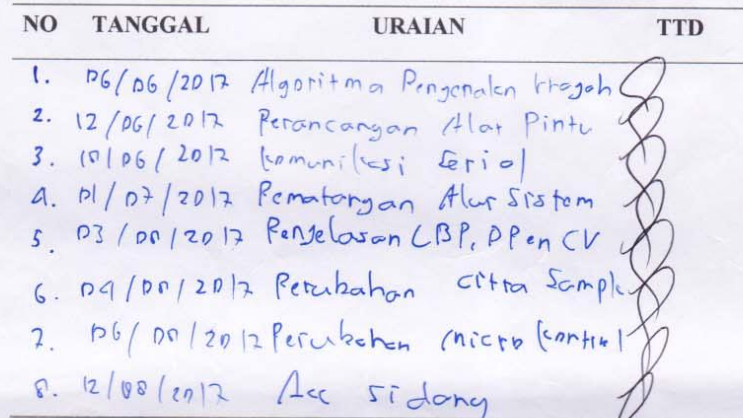 NO TANGGAL URAIAN TTD
1. 06/06/2017 Algoritma Pengenalan Wajah
2. 12/06/2017 Perancangan Alat Pintu
3. 18/06/2017 Komunikasi Serial
4. 01/07/2017 Pematangan Alur Sistem
5. 03/08/2017 Penjelasan LBP, OPen CV
6. 04/08/2017 Perubahan citra Sample
7. 06/08/2017 Perubahan microkontrol
8. 12/08/2017 Acc Sidang